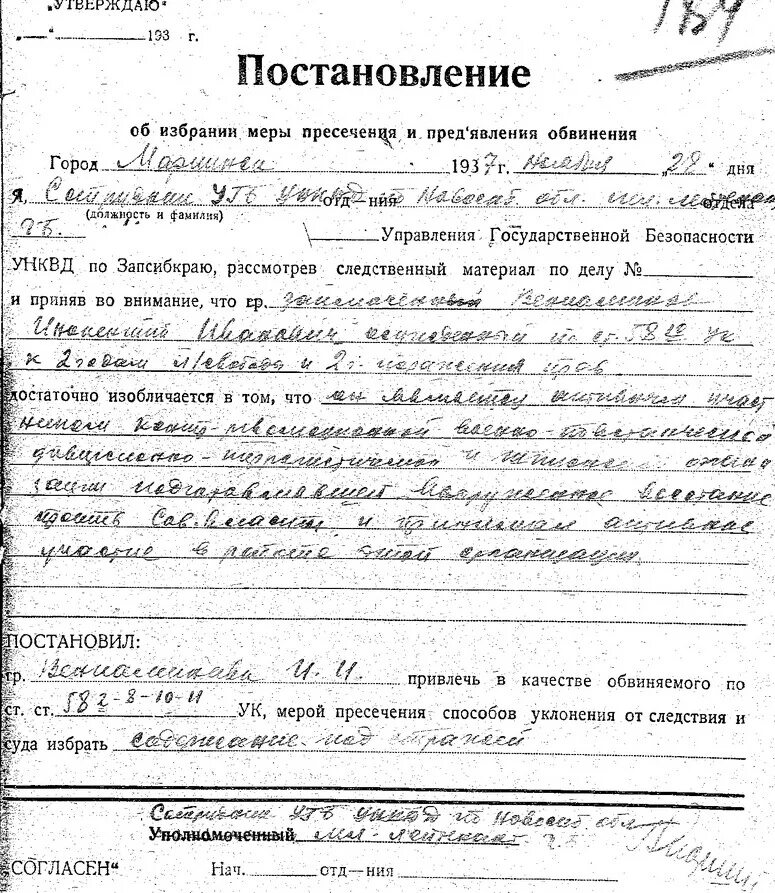 „УТВЕРЖДАЮ“
„___“ ____________ 193 г.
184
Постановление
об избрании меры пресечения и пред'явления обвинения
Город Мариинск 1937 г. ноября „28“ дня
Я, Сотрудник УГБ УНКВД отд-ния по Новосиб. обл. мл. лейтенант отдела
(должность и фамилия)
Г.Б. Управления Государственной Безопасности
УНКВД по Запсибкраю, рассмотрев следственный материал по делу №
и приняв во внимание, что гр. заключенный Вениаминов
Инокентий Иванович осужденный по ст. 58 10 УК
к 2 годам л/свободы и 2 г. поражения прав
достаточно изобличается в том, что он является активным участ
ником контр-революционной военно-повстанческой
диверсионно-террористической и шпионской органи
зации подготавливавшей вооруженное восстание
против Сов. Власти и принимал активное
участие в работе этой организации
ПОСТАНОВИЛ:
гр. Вениаминова И. И. привлечь в качестве обвиняемого по
ст. ст. 58 2-8-10-11 УК, мерой пресечения способов уклонения от следствия и
суда избрать содержание под стражей
Сотрудник УГБ УНКВД по Новосиб обл
Уполномоченный мл. лейтенант Г.Б.
„СОГЛАСЕН“ Нач. отд—ния